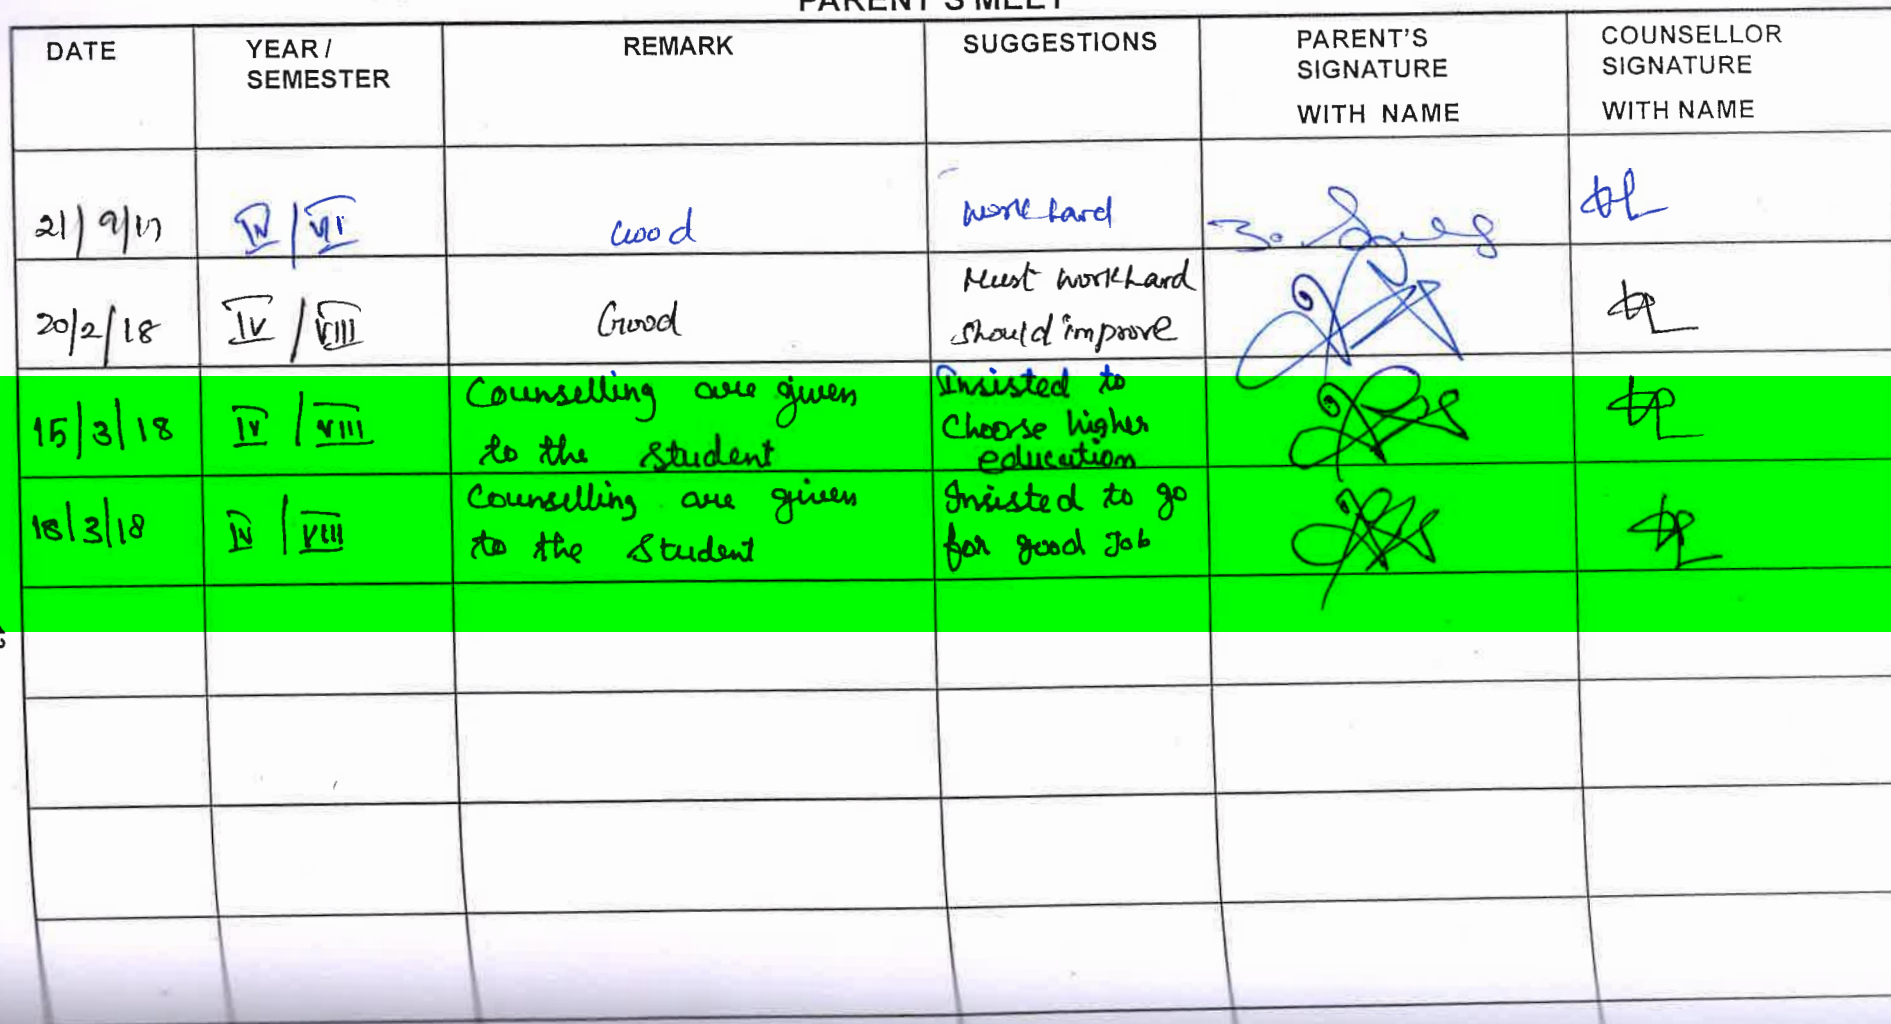 PARENT'S MEET
DATE YEAR / SEMESTER REMARK SUGGESTIONS PARENT'S SIGNATURE WITH NAME COUNSELLOR SIGNATURE WITH NAME
21/9/17 IV / VII Good work hard
20/2/18 IV / VIII Good Must work hard
should improve
15/3/18 IV / VIII Counselling are given Insisted to
to the Student Choose higher
education
18/3/18 IV / VIII Counselling are given Insisted to go
to the Student for good Job